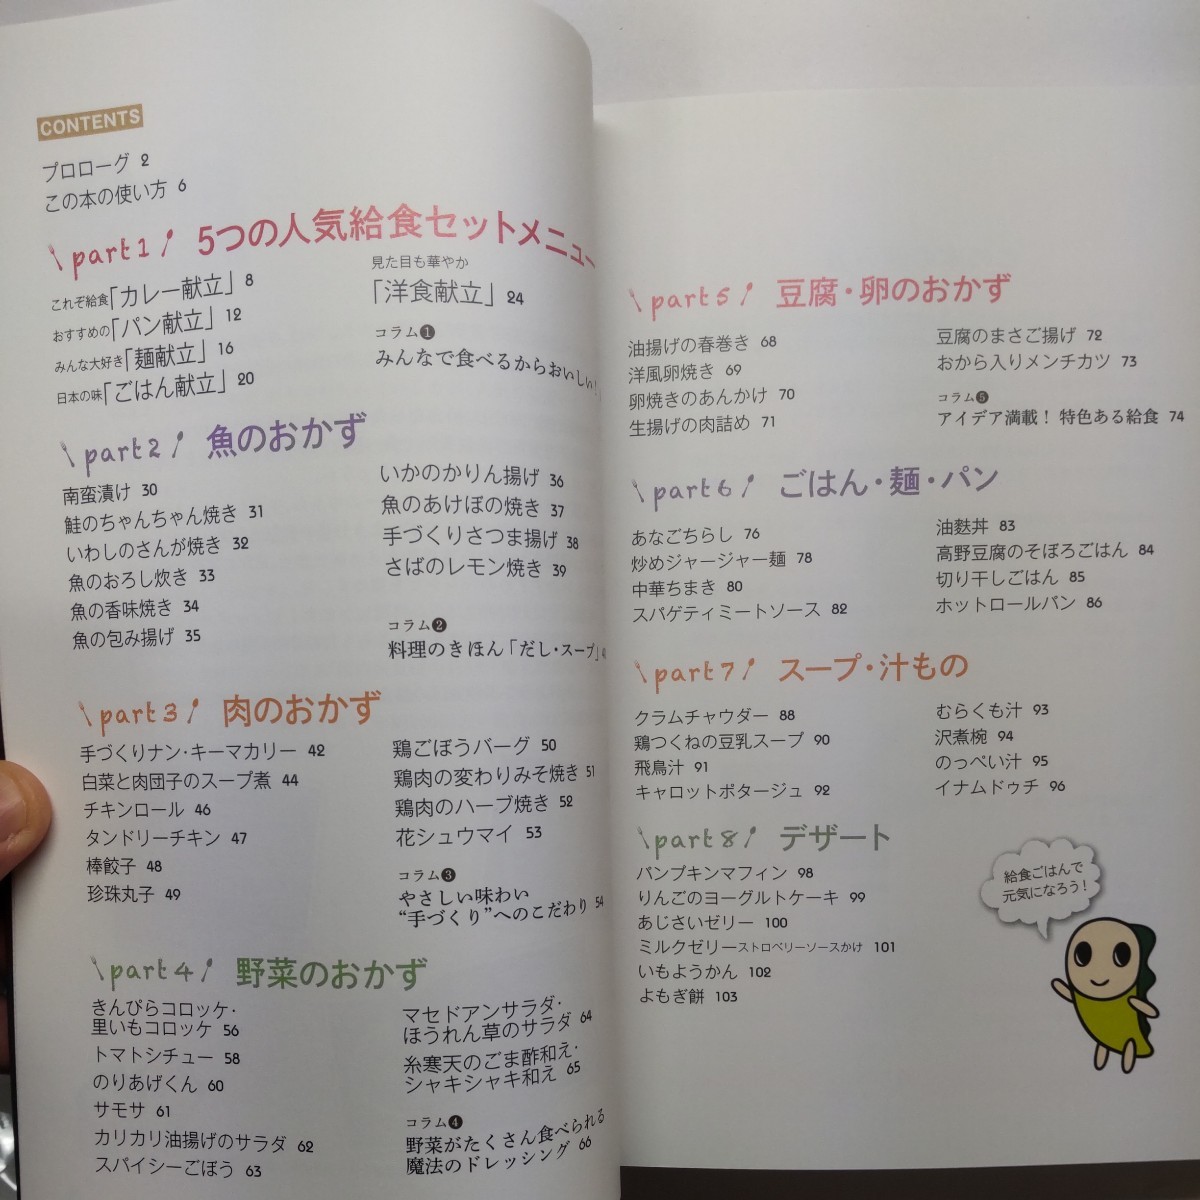 CONTENTS
プロローグ 2
この本の使い方 6
part1 5つの人気給食セットメニュー
これぞ給食「カレー献立」 8
おすすめの「パン献立」 12
みんな大好き「麺献立」 16
日本の味「ごはん献立」 20
見た目も華やか
「洋食献立」 24
コラム❶
みんなで食べるからおいしい!
part2 魚のおかず
南蛮漬け 30
鮭のちゃんちゃん焼き 31
いわしのさんが焼き 32
魚のおろし炊き 33
魚の香味焼き 34
魚の包み揚げ 35
いかのかりん揚げ 36
魚のあけぼの焼き 37
手づくりさつま揚げ 38
さばのレモン焼き 39
コラム❷
料理のきほん「だし・スープ」
part3 肉のおかず
手づくりナン・キーマカリー 42
白菜と肉団子のスープ煮 44
チキンロール 46
タンドリーチキン 47
棒餃子 48
珍珠丸子 49
鶏ごぼうバーグ 50
鶏肉の変わりみそ焼き 51
鶏肉のハーブ焼き 52
花シュウマイ 53
コラム❸
やさしい味わい
“手づくり”へのこだわり 54
part4 野菜のおかず
きんぴらコロッケ・
里いもコロッケ 56
トマトシチュー 58
のりあげくん 60
サモサ 61
カリカリ油揚げのサラダ 62
スパイシーごぼう 63
マセドアンサラダ・
ほうれん草のサラダ 64
糸寒天のごま酢和え・
シャキシャキ和え 65
コラム❹
野菜がたくさん食べられる
魔法のドレッシング 66
part5 豆腐・卵のおかず
油揚げの春巻き 68
洋風卵焼き 69
卵焼きのあんかけ 70
生揚げの肉詰め 71
豆腐のまさご揚げ 72
おから入りメンチカツ 73
コラム❺
アイデア満載! 特色ある給食 74
part6 ごはん・麺・パン
あなごちらし 76
炒めジャージャー麺 78
中華ちまき 80
スパゲティミートソース 82
油麩丼 83
高野豆腐のそぼろごはん 84
切り干しごはん 85
ホットロールパン 86
part7 スープ・汁もの
クラムチャウダー 88
鶏つくねの豆乳スープ 90
飛鳥汁 91
キャロットポタージュ 92
むらくも汁 93
沢煮椀 94
のっぺい汁 95
イナムドゥチ 96
part8 デザート
パンプキンマフィン 98
りんごのヨーグルトケーキ 99
あじさいゼリー 100
ミルクゼリーストロベリーソースかけ 101
いもようかん 102
よもぎ餅 103
給食ごはんで
元気になろう!